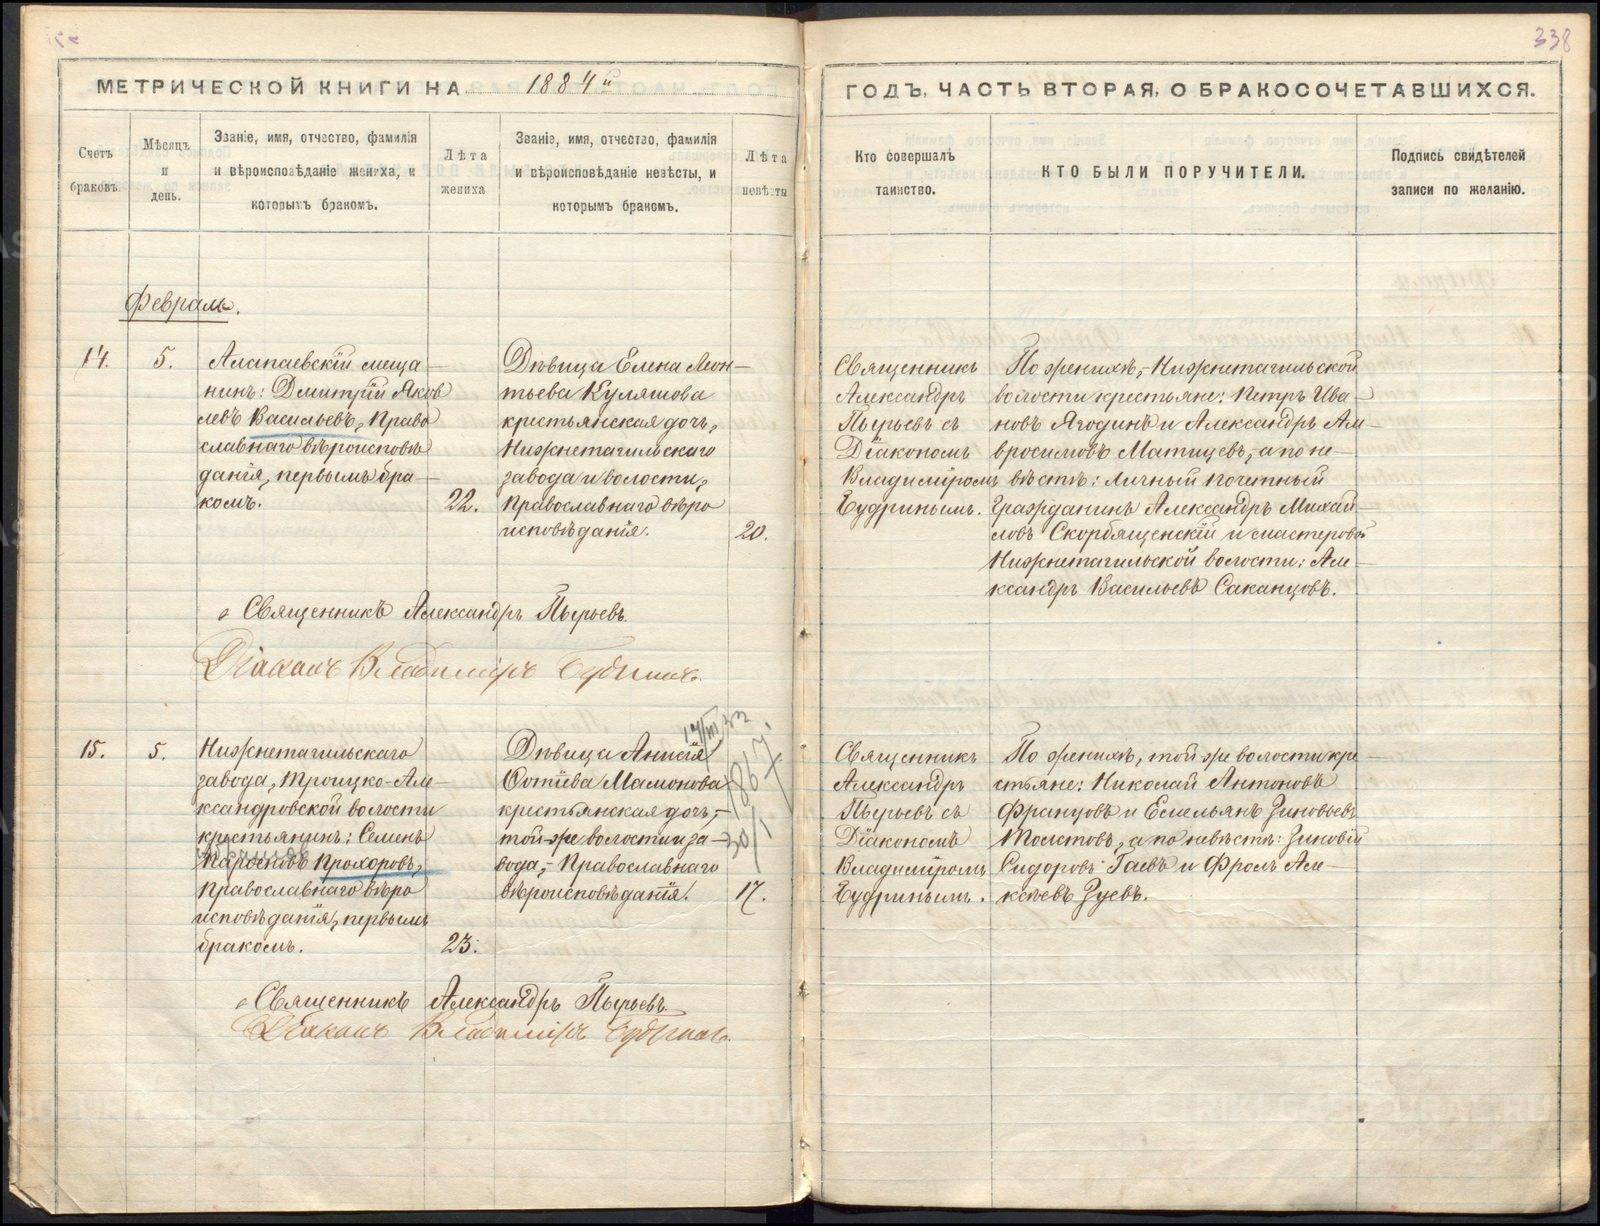 338
МЕТРИЧЕСКОЙ КНИГИ НА 1884 й
ГОДЪ, ЧАСТЬ ВТОРАЯ, О БРАКОСОЧЕТАВШИХСЯ.
Счетъ
браковъ.
Мѣсяцъ
и
день.
Званіе, имя, отчество, фамилія
и вѣроисповѣданіе жениха, и
которымъ бракомъ.
Лѣта
жениха
Званіе, имя, отчество, фамилія
и вѣроисповѣданіе невѣсты, и
которымъ бракомъ.
Лѣта
невѣсты
Кто совершалъ
таинство.
КТО БЫЛИ ПОРУЧИТЕЛИ.
Подпись свидѣтелей
записи по желанію.
Февраль.
14.
5.
Алапаевскій меща-
нинъ: Дмитрій Яков
левъ Васильевъ, Право
славнаго вѣроисповѣ
данія, первымъ бра-
комъ.
22.
Дѣвица Елена Леон-
тьева Куляшова
крестьянская дочь,
Нижнетагильскаго
завода и волости,
Православнаго вѣро
исповѣданія.
20.
Священникъ
Александръ
Пырьевъ съ
Діакономъ
Владиміромъ
Будринымъ.
По женихѣ,- Нижнетагильской
волости крестьяне: Петръ Ива-
новъ Ягодинъ и Александръ Ам-
вросимовъ Матицевъ, а по не-
вѣстѣ: Личный почетный
Гражданинъ Александръ Михай-
ловъ Скорбященскій и мастеровой
Нижнетагильской волости: Але-
ксандръ Васильевъ Саканцовъ.
Священникъ Александръ Пырьевъ.
Діаконъ Владиміръ Будринъ.
15.
5.
Нижнетагильскаго
завода, Троицко-Але-
ксандровской волости
крестьянинъ: Семенъ
Прохоровъ,
Православнаго вѣро
исповѣданія, первымъ
бракомъ.
23.
Дѣвица Анисія
Фотіева Мамонова
крестьянская дочь,-
той-же волости и за-
вода,- Православнаго
вѣроисповѣданія.
17.
1867
30/I
Священникъ
Александръ
Пырьевъ съ
Діакономъ
Владиміромъ
Будринымъ.
По женихѣ, той-же волости кре-
стьяне: Николай Антоновъ
Французовъ и Емельянъ Зиновьевъ
Толстовъ, а по невѣстѣ: Зиновій
Сидоровъ Гаевъ и Фролъ Але-
ксѣевъ Зуевъ.
Священникъ Александръ Пырьевъ.
Діаконъ Владиміръ Будринъ.